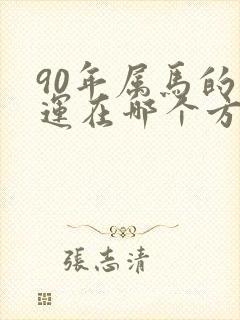 90年属馬的
運在哪个方
張志清